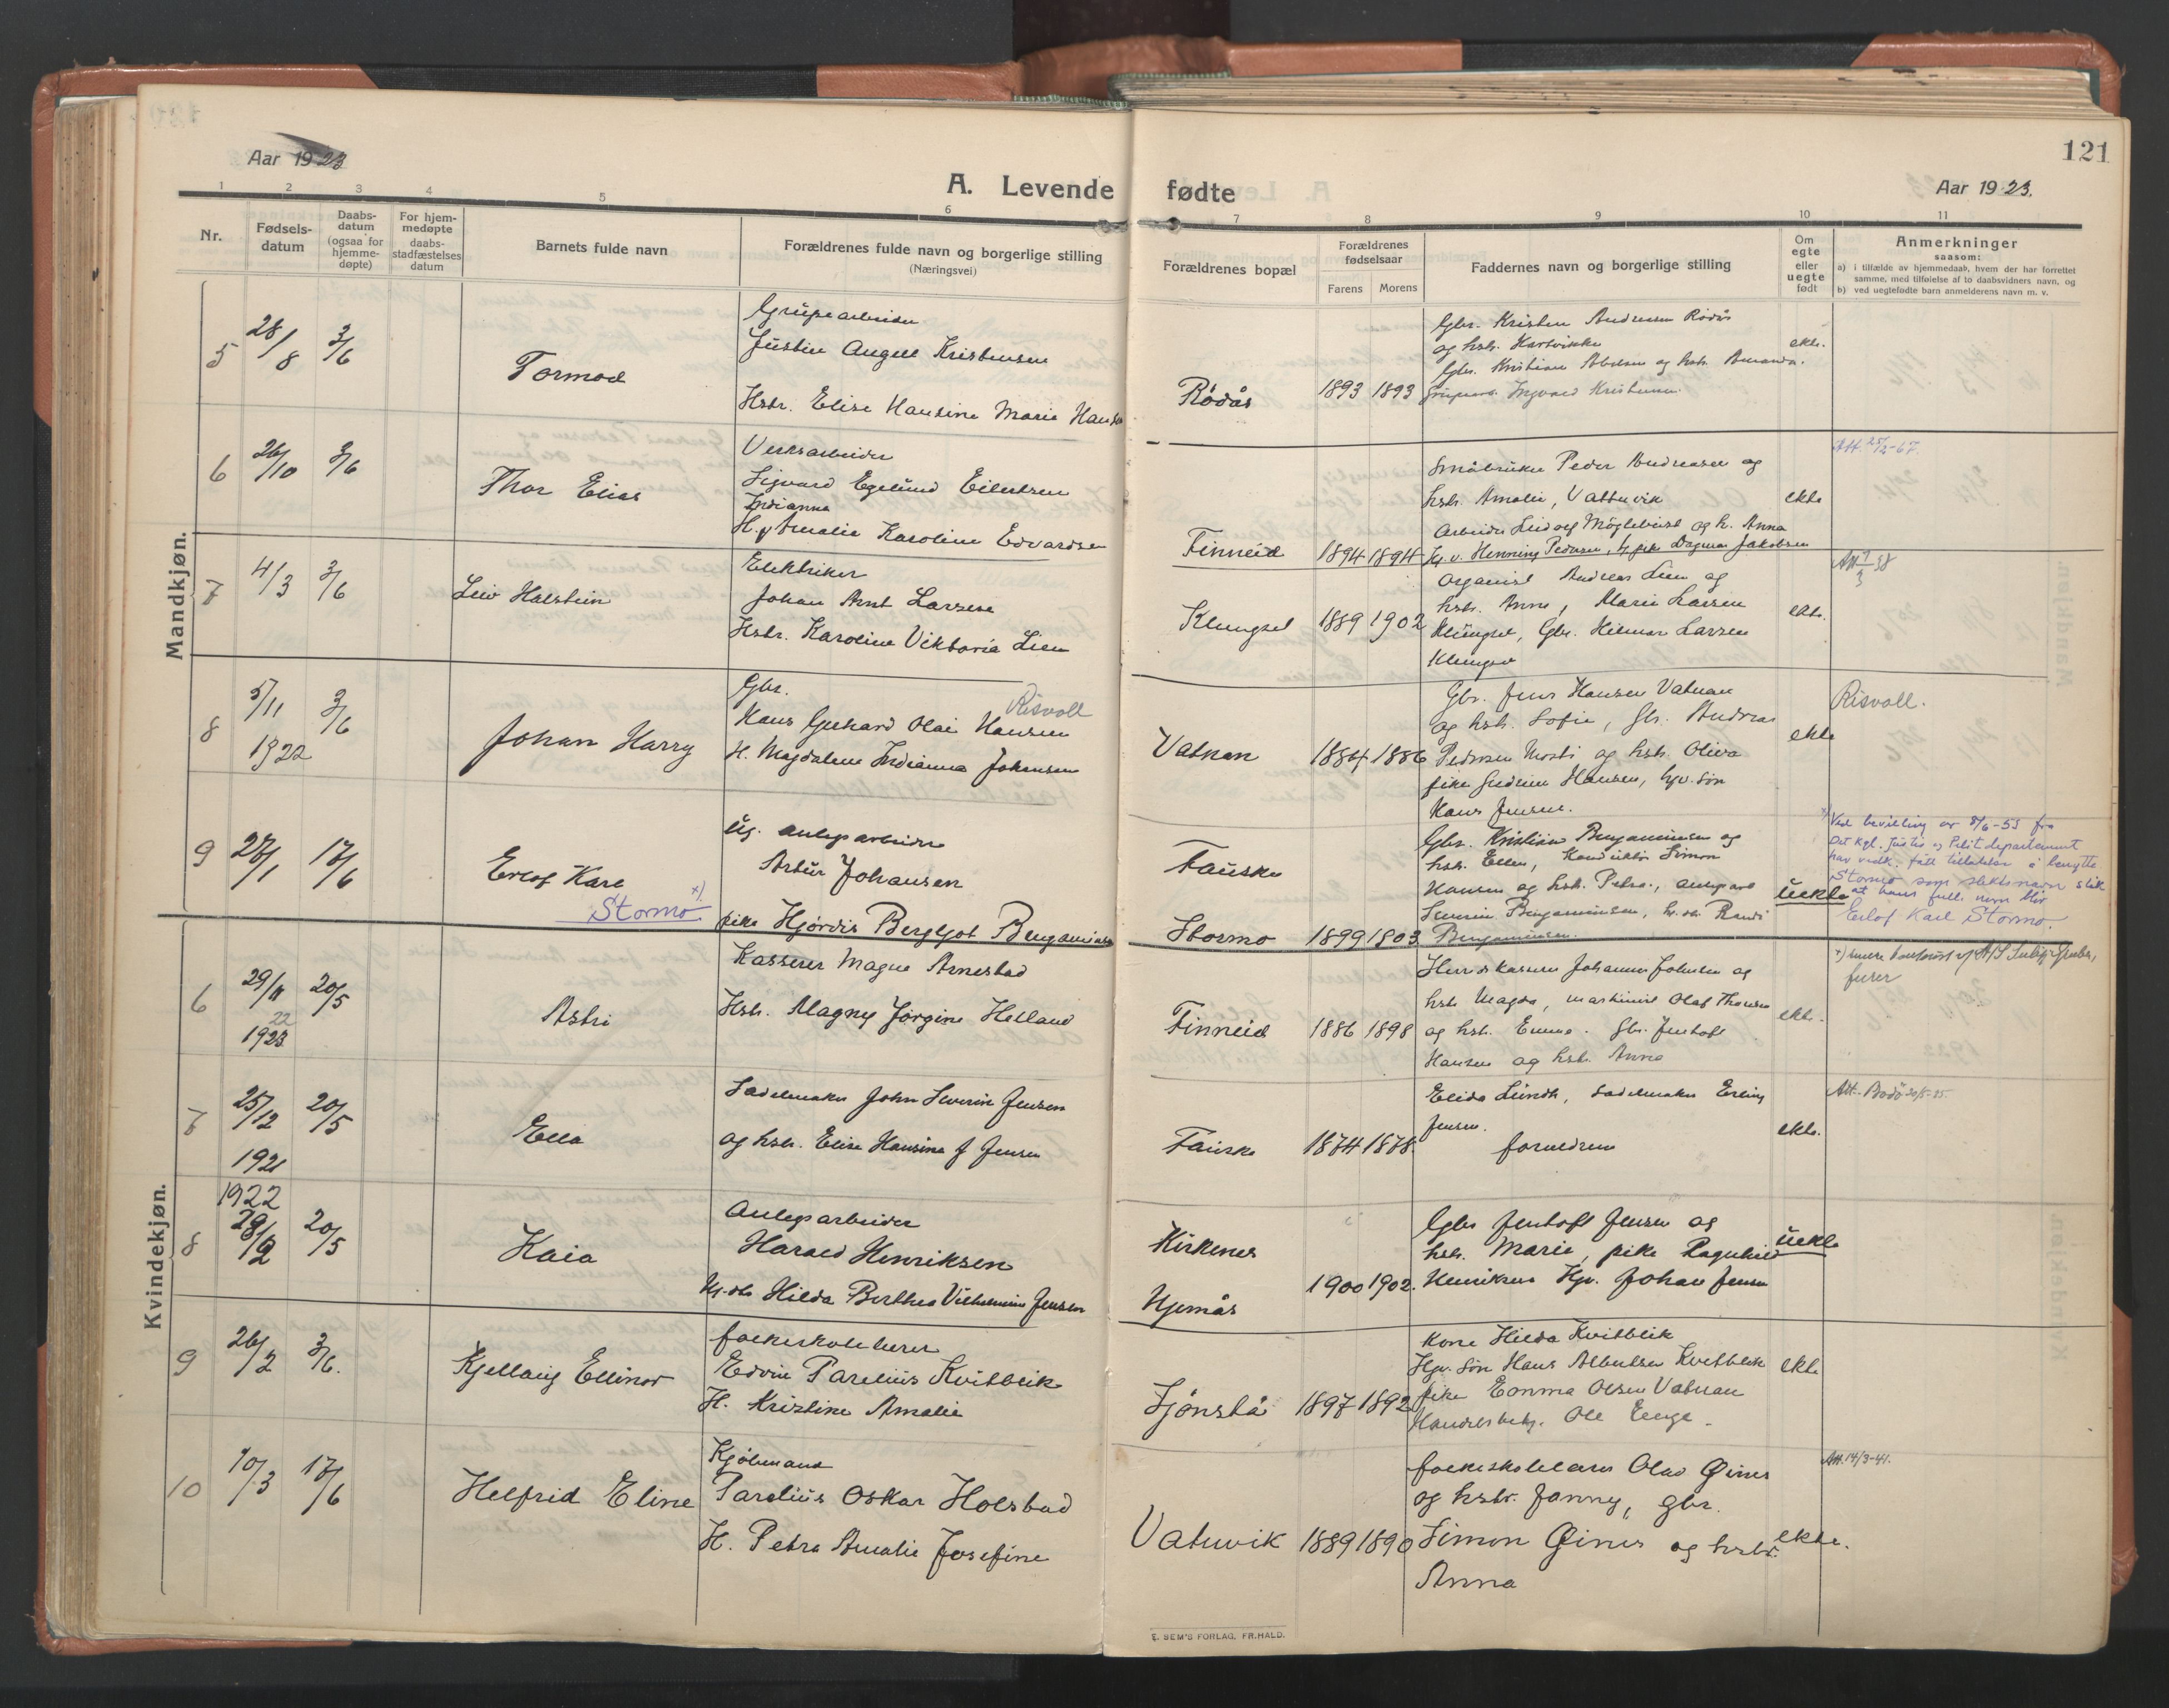 Aar 1923
A. Levende fødte
Aar 1923.
121
1 2 3 4 5 6 7 8 9 10 11
Nr.
Fødsels-
datum
Daabs-
datum
(ogsaa for
hjemme-
døpte)
For hjem-
medøpte
daabs-
stadfæstelses
datum
Barnets fulde navn
Forældrenes fulde navn og borgerlige stilling
(Næringsvei)
Forældrenes bopæl
Forældrenes
fødselsaar
Farens Morens
Faddernes navn og borgerlige stilling
Om
egte
eller
uegte
født
Anmerkninger
saasom:
a) i tilfælde av hjemmedaab, hvem der har forrettet
samme, med tilføielse af to daabsvidners navn, og
b) ved uegtefødte barn anmelderens navn m. v.
Mandkjøn.
5 28/8 3/6
Tormod
Grubearbeider
Justin August Kristensen
Hstr. Elise Hansine Marie Hansen
Rødås
1893 1893
Gbr. Kristen Andreasen Rødås
og hstr. Hartvikke
Gbr. Kristian Abelsen og hstr. Amanda.
Ingvald Kristensen.
ekte.
6 26/10 3/6
Thor Elias
Verksarbeider
Sigvard Egelund Eilertsen
Indianna
H. Amalie Karoline Edvardsen
Finneid
1894 1894
Småbruker Peder Andreasen og
hstr. Amalie, Vattuvik
Arbeider Ludvig og h. Anna
Henning Pedersen, Dagmar Jakobsen
ekte
Att. 25/2-67.
7 4/3 3/6
Leiv Halstein
Elektriker
Johan Arnt Larsen
Hstr. Karoline Viktoria Lien
Klungset
1889 1902
Organist Andreas Lien og
hstr. Anna, Marie Larsen
Klungset, Gbr. Hilmar Larsen
Klungset
ekte.
8 5/11 3/6
1922
Johan Harry
Gbr.
Risvoll
Hans Gerhard Olai Hansen
H. Magdalene Indianna Johansen
Vatnan
1884 1886
Gbr. Jens Hansen Vatnan
og hstr. Sofie, Gbr. Andreas
Pedersen Mosti og hstr. Oliva
pike Gudrun Hansen, søn
Hans Jensen.
ekte
Risvoll.
9 27/1 17/6
Erlof Kare
Stormo x)
ug. anlegsarbeider
Artur Johansen
pike Hjørdis Bergljot Benjaminsen
Fauske
Stormo
1899 1803
Gbr. Kristian Benjaminsen og
hstr. Ellen, Konduktør Simon
Hansen og hstr. Petra.,
Benjaminsen, Randi
Benjaminsen.
uekte
x) Ved bevilling av 8/6-53 fra
Det kgl. Justis og Politidepartement
har vedk. fått tillatelse å benytte
Stormo som slektsnavn slik
at hans fulle navn blir
Erlof Karl Stormo.
Kvindekjøn.
6 29/11 20/5
22
1923
Astri
Kasserer Magne Arnestad
Hstr. Magny Jørgine Helland
Finneid
1886 1898
Herredskasserer Johannes Johnsen og
hstr. Magda, maskinist Olaf Thorsen
og hstr. Emma. Gbr. Jentoft
Hansen og hstr. Anna
ekte.
7 25/12 20/5
1921
Ella
Sadelmaker John Severin Jensen
og hstr. Elise Hansine J Jensen
Fauske
1874 1878.
Elida Lundh, sadelmaker Erling
Jensen.
foreldrene
ekte.
Att. Bodø 20/5-25.
1922
8 28/9 20/5
Kaia
Anlegsarbeider
Harald Henriksen
Hilda Berthea Vilhelmine Jensen
Kirkenes
Hjemås
1900 1902.
Gbr Jentoft Jensen og
hstr. Marie, pike Ragnhild
Henriksen Johan Jensen
uekte
9 26/2 3/6.
Kjellaug Ellinor
folkeskolelærer
Edvin Parelius Kvitblik
H. Kristine Amalie
Sjønstå
1897 1892
Kone Hilda Kvitblik
søn Hans Albertsen Kvitblik
pike Emma Olsen Vatnan
Handelsbetj. Ole Enge.
ekte
10 10/3 17/6
Helfrid Eline
Kjøbmand
Parelius Oskar Holstad
H. Petra Amalie Josefine
Vatuvik
1889 1890
folkeskolelærer Olav Øines
og hstr. Fanny, gbr.
Simon Øines og hstr.
Anna
ekte.
Att. 14/3-41.
E. SEM'S FORLAG, FR.HALD.